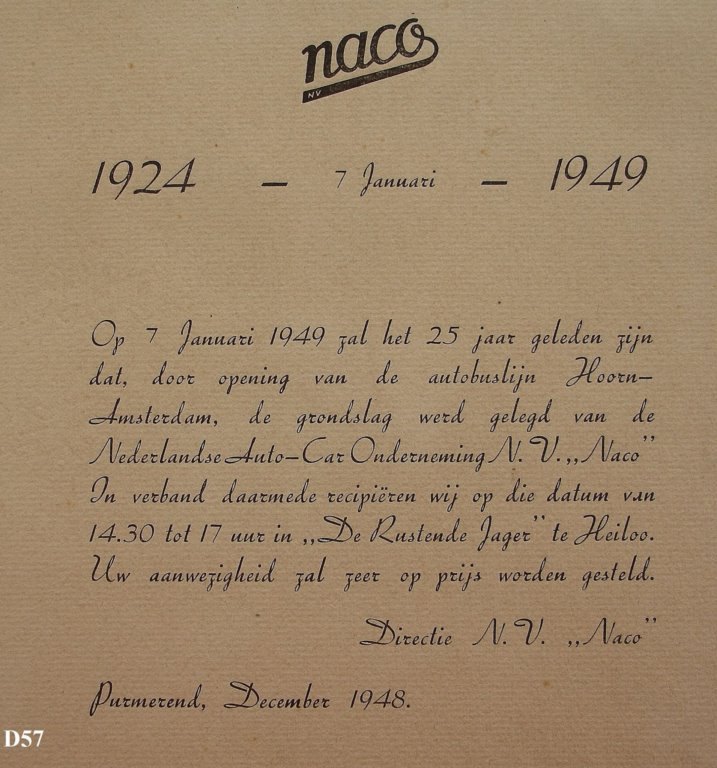 naco
NV
1924 – 7 Januari – 1949
Op 7 Januari 1949 zal het 25 jaar geleden zijn
dat, door opening van de autobuslijn Hoorn–
Amsterdam, de grondslag werd gelegd van de
Nederlandse Auto–Car Onderneming N. V. „Naco”
In verband daarmede recipiëren wij op die datum van
14.30 tot 17 uur in „De Rustende Jager” te Heiloo.
Uw aanwezigheid zal zeer op prijs worden gesteld.
Directie N. V. „Naco”
Purmerend, December 1948.
D57